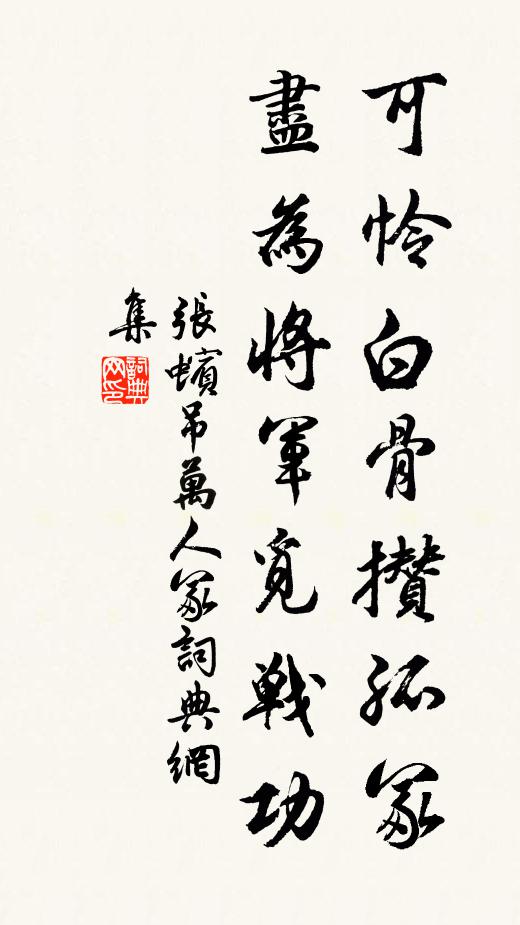 可怜白骨攢孤冢
盡為將軍覓戰功
張蠙吊萬人冢詞典網
集
詞典
网印